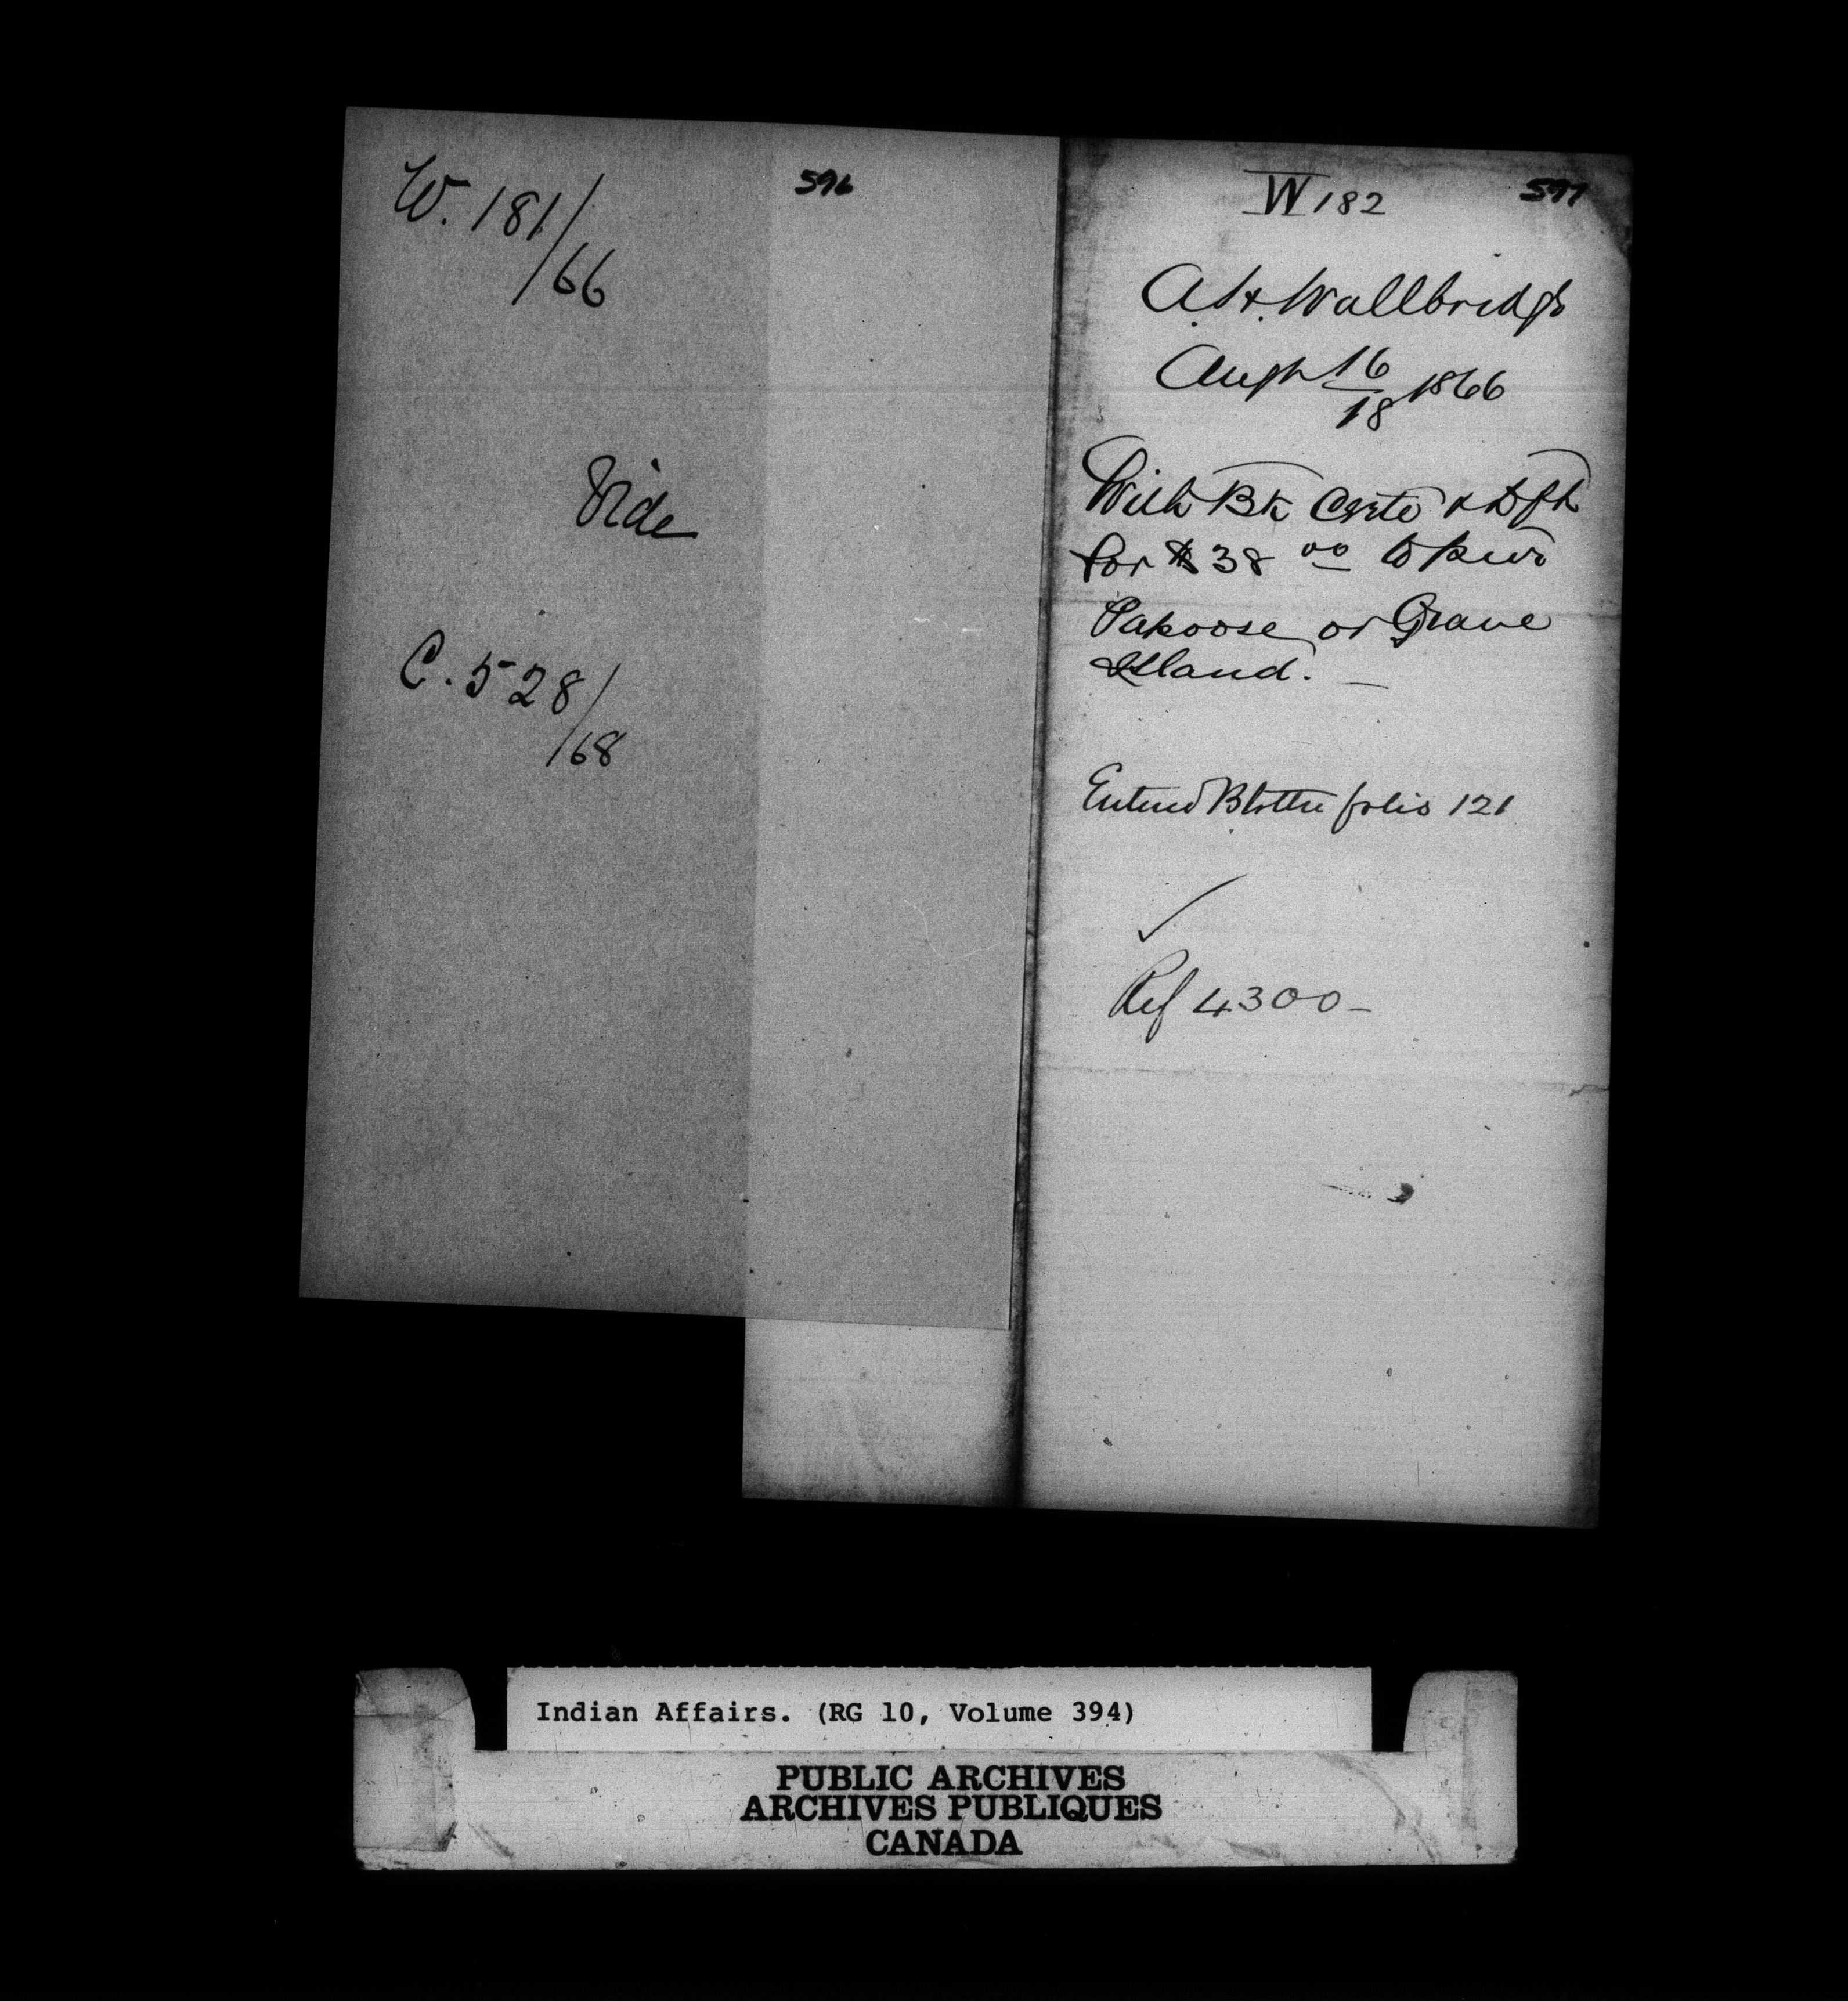 596
W. 181/66
Vide
C. 528/68
597
W 182
A. H. Wallbridge
Augt 16/18 1866
With Bk Certe & Dft
for $38 00 to
Papoose or Grave
Island. —
Entered Blotter folio 121
✓
Ref 4300 –
Indian Affairs. (RG 10, Volume 394)
PUBLIC ARCHIVES
ARCHIVES PUBLIQUES
CANADA